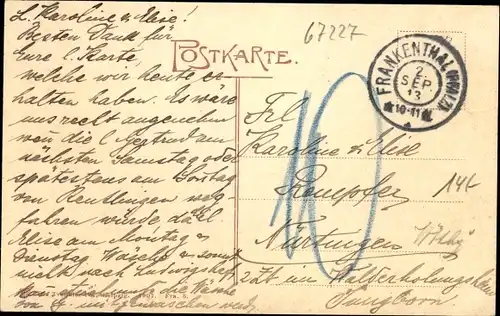 L. Karoline & Elise!
Besten Dank für
Eure l. Karte,
welche wir heute er-
halten haben. Es wäre
uns recht angenehm
wen die l. Gertrud am
nächsten Samstag oder
spätestens am Sontag
von Reutlingen weg-
fahren würde, da l.
Elise am Montag &
Dienstag Wäsche & sonst
nicht nach Ludwigshaf.
die Wäsche
67227
POSTKARTE.
FRANKENTHAL (PFALZ)
2.
SEP
13
10-11
10
Frl
Karoline & Elise
Rempfer
Nürtingen
Wttbg
14t
z Zt. im Walderholungsheim
Jungborn.